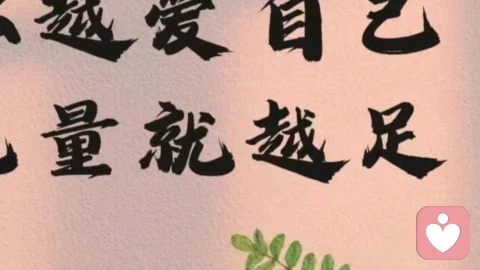 越爱自己
量就越足